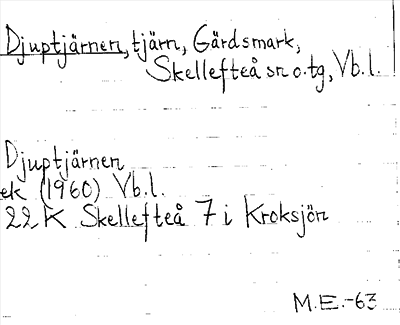 Djuptjärnen, tjärn, Gärdsmark,
Skellefteå sn o. tg, Vb. l.
Djuptjärnen
ek (1960) Vb. l.
22 K Skellefteå 7 i Kroksjön
M.E.-63